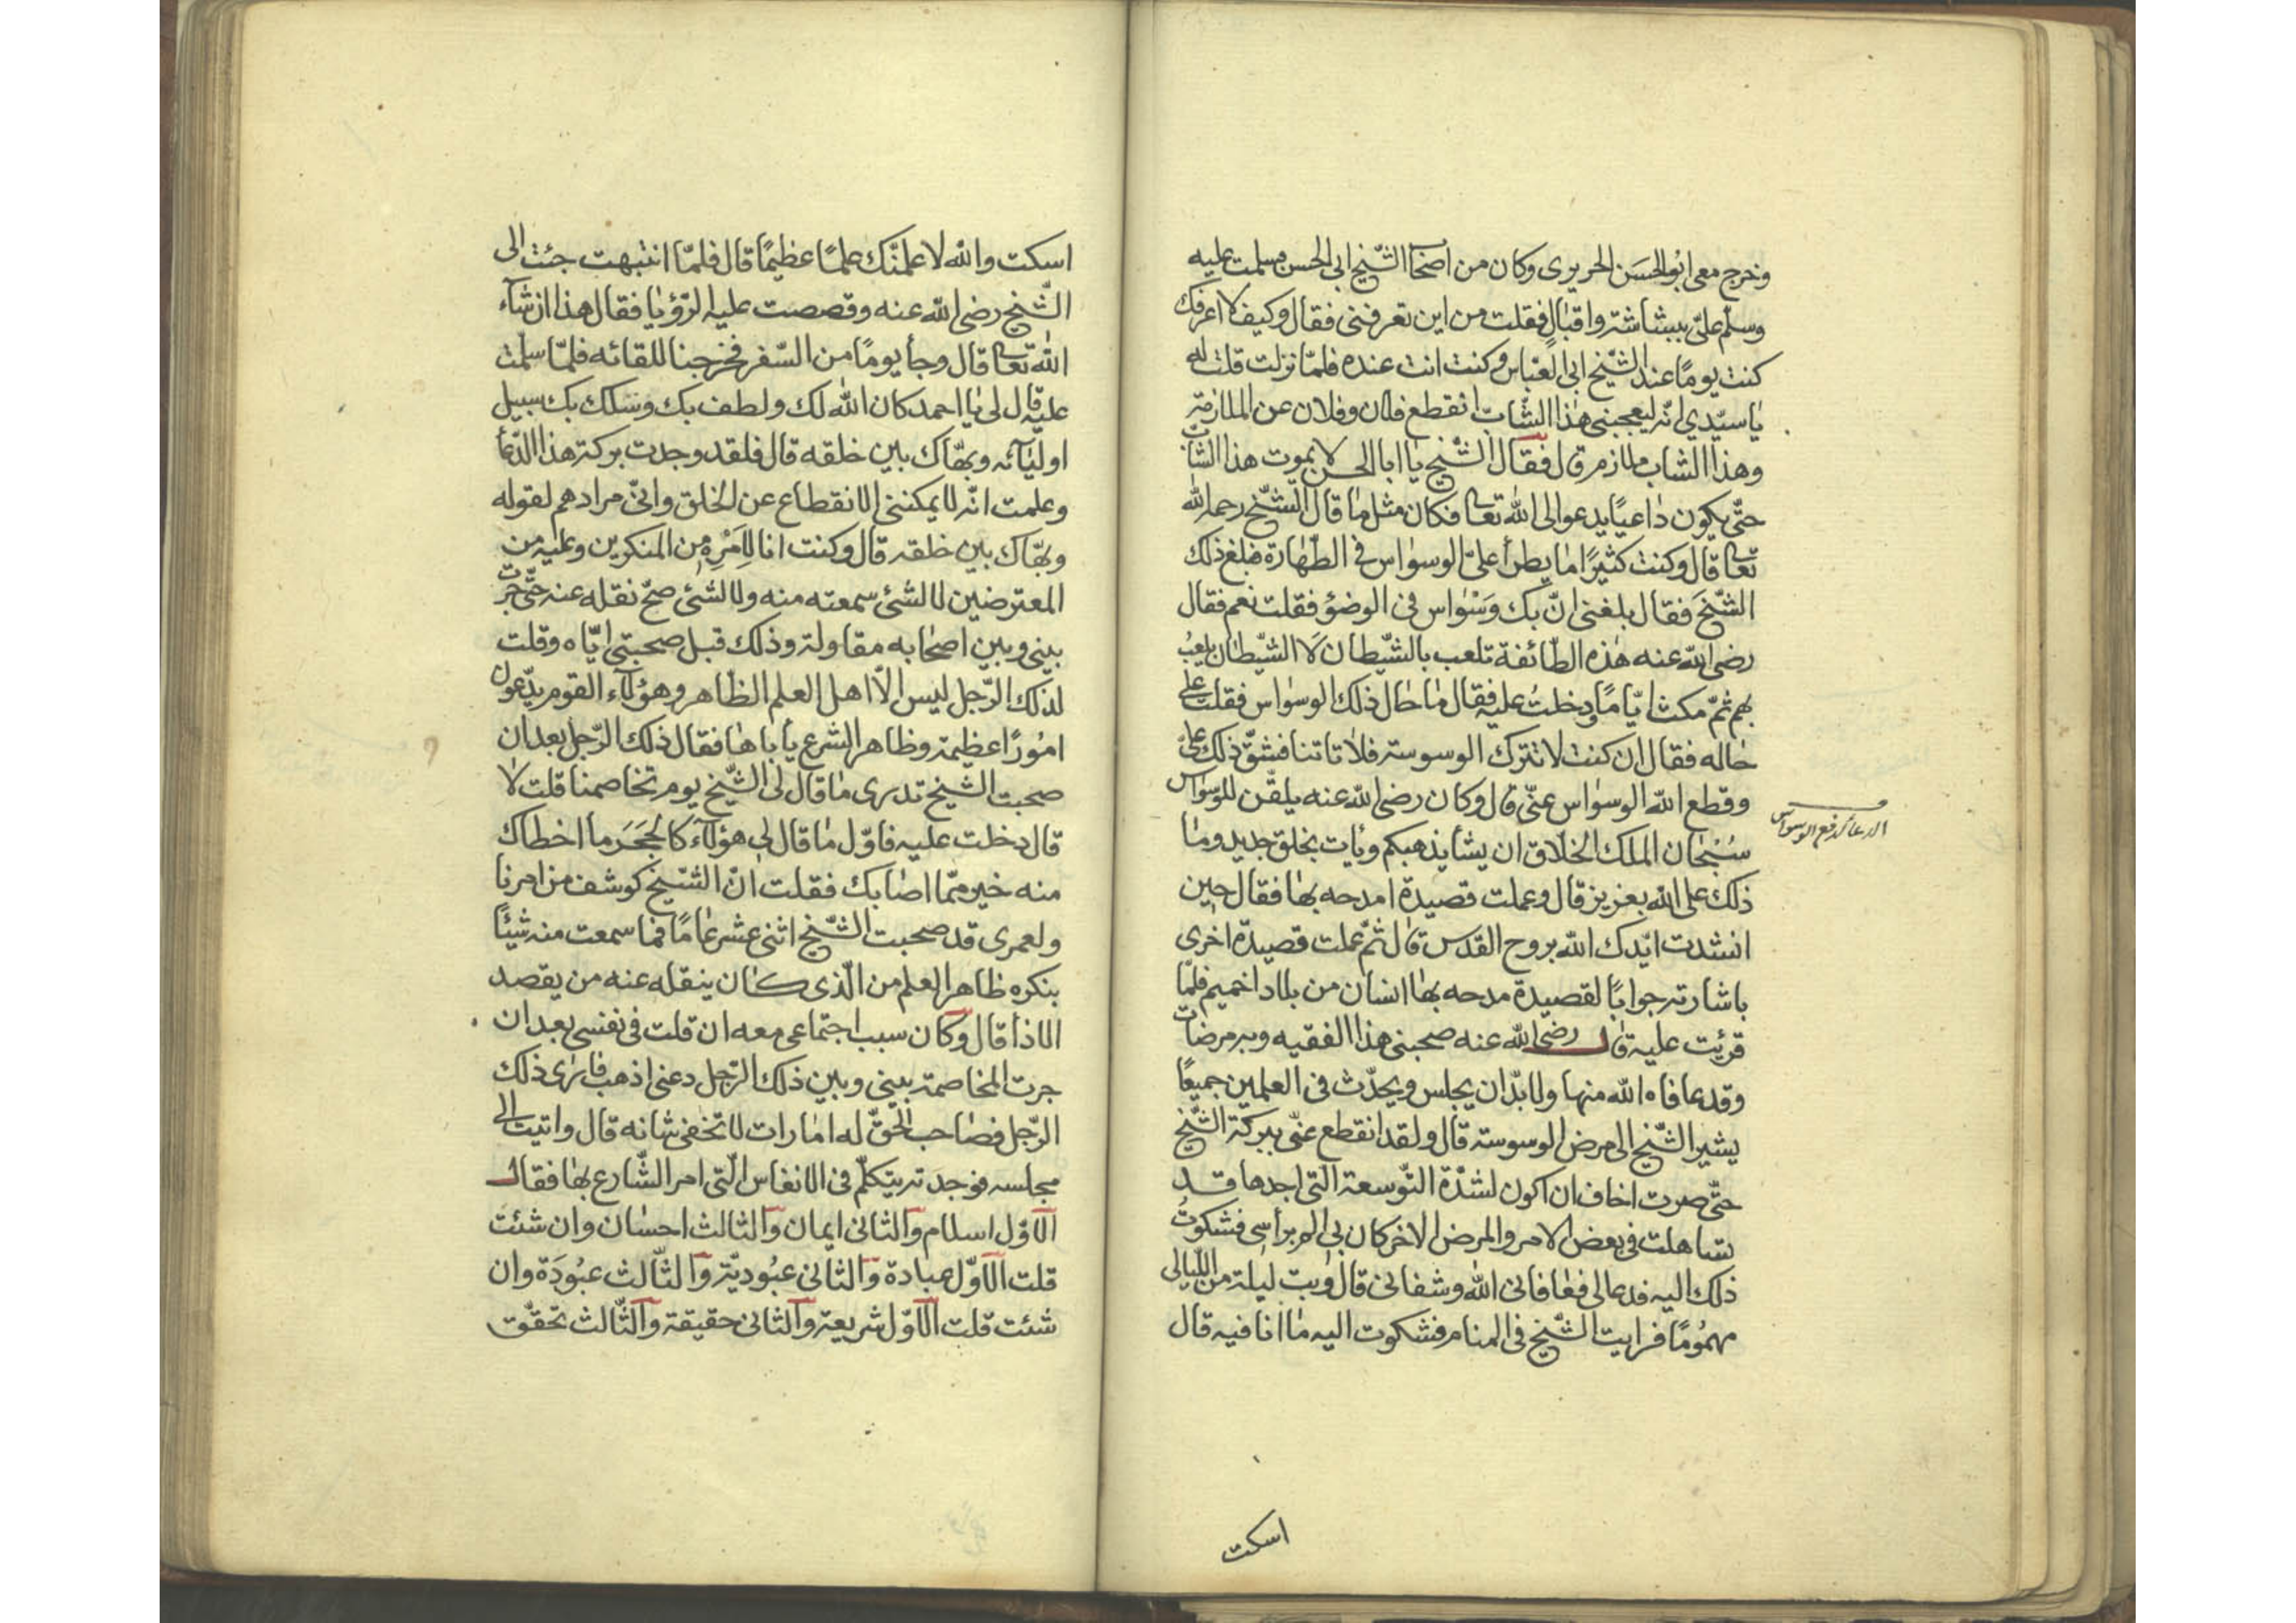 وخرج معى ابوالحسَن الحريرى وكان من اصحاب الشّيخ ابى الحسن فسلمت عليه
وسلّم علىّ ببشاشة واقبالٍ فقلت من اين تعرفنى فقال وكيف لا اعرفك
كنت يومًا عند الشّيخ ابى العبّاس وكنت انت عنده فلمّا نزلت قلت له
يا سيّدي انّه ليعجبنى هٰذا الشابّ انقطع فلان وفلان عن الملازمة
وهذا الشاب ملازم قال فقال الشّيخ يا ابا الحسن لا يموت هذا الشابّ
حتّى يكون داعيًا يدعو الى اللّٰه تعا فكان مثل ما قال الشّيخ رحمه اللّٰه
تعا قال وكنت كثيرًا ما يطرأ علىّ الوسواس فى الطّهارة فبلغ ذلك
الشّيخَ فقال بلغنى انّ بك وَسْواس فى الوضؤ فقلت نعم فقال
رضى اللّٰه عنه هٰذه الطّائفة تلعب بالشّيطان لا الشّيطان يلعبُ
بهم ثمّ مكثت ايّامًا ودخلتُ عليه فقال ما حال ذلك الوسواس فقلت على
حاله فقال ان كنت لا تترك الوسوسة فلا تاتنا فشقّ ذلك علىّ
وقطع اللّٰه الوسواس عنّى قال وكان رضى اللّٰه عنه يلقّن للوسواس
سُبْحان الملك الخلّاق ان يشأ يذهبكم ويأت بخلق جديد وما
الدعا لدفع الوسواس
ذلك على اللّٰه بعزيز قال وعملت قصيدة امدحه بها فقال حين
انشدت ايّدك اللّٰه بروح القدس قال ثمّ عملت قصيدة اخرى
باشارته جوابًا لقصيدة مدحه بها انسان من بلاد اخميم فلمّا
قرئت عليه قال رضى اللّٰه عنه صحبنى هذا الفقيه وبه مرضات
وقد عافاه اللّٰه منها ولا بدّ ان يجلس ويحدّث فى العلمين جميعًا
يشير الشّيخ الى مرض الوسوسة قال ولقد انقطع عنّى ببركة الشّيخ
حتّى صرت اخاف ان اكون لشدّة التّوسعة الّتى اجدها قد
تساهلت فى بعض الامر والمرض الاخر كان بى الم برأسى فشكوتُ
ذلك اليه فدعا لى فعافانى اللّٰه وشفانى قال وبتّ ليلة من اللّيالى
مهمُومًا فرايت الشّيخ فى المنام فشكوت اليه ما انا فيه قال
اسكت
اسكت واللّٰه لاعلّمنّك علمًا عظيمًا قال فلمّا انتبهت جئت الى
الشّيخ رضى اللّٰه عنه وقصصت عليه الرّؤيا فقال هذا ان شآء
اللّٰه تعا قال وجأ يومًا من السّفر فخرجنا للقائه فلمّا سلّمت
عليه قال لى يا احمد كان اللّٰه لك ولطف بك وسلك بك سبيل
اوليآئه وبهّاك بين خلقه قال فلقد وجدت بركة هذا الدّعأ
وعلمت انّه لا يمكننى الانقطاع عن الخلق وانّى مرادهم لقوله
وبهّاك بين خلقه قال وكنت انا لِاَمْرِه من المنكرين وعليه من
المعترضين لا لشئ سمعته منه ولا لشئ صحّ نقله عنه حتّى جرت
بينى وبين اصحابه مقاولة وذلك قبل صحبتى ايّاه وقلت
لذلك الرّجل ليس الّا اهل العلم الظّاهر وهؤلآء القوم يدّعون
امُورًا عظيمة وظاهر الشرع ياباها فقال ذلك الرّجل بعد ان
صحبت الشّيخ تدرى ما قال لى الشّيخ يوم تخاصمنا قلت لا
قال دخلت عليه فاوّل ما قال لى هؤلآء كالحجَرَ ما اخطاك
منه خير ممّا اصابك فقلت انّ الشّيخ كوشف من امرنا
ولعمرى قد صحبت الشّيخ اثنى عشر عامًا فما سمعت منه شيئًا
ينكره ظاهر العلم من الّذى كان ينقله عنه من يقصد
الاذا قال وكان سبب اجتماعى معه ان قلت فى نفسى بعد ان
جرت المخاصمة بينى وبين ذلك الرّجل دعنى اذهب فارى ذلك
الرّجل فصاحب الحقّ له امارات لا تخفى شانه قال واتيت الى
مجلسه فوجدته يتكلّم فى الانفاس الّتى امر الشّارع بها فقال
الاوّل اسلام والثانى ايمان والثالث احسان وان شئت
قلت الاوّل عبادة والثانى عبُوديّة والثّالث عبُودَة وان
شئت قلت الاوّل شريعة والثانى حقيقة والثّالث تحقّق